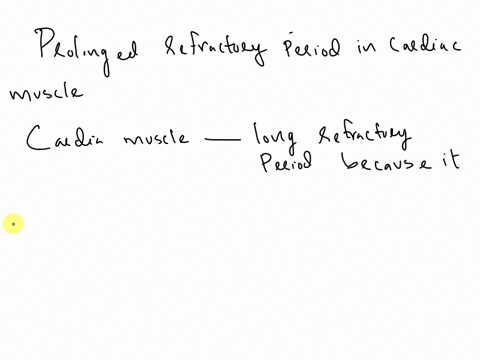 Prolonged refractory period in cardiac
muscle
Cardia muscle — long refractory
period because it